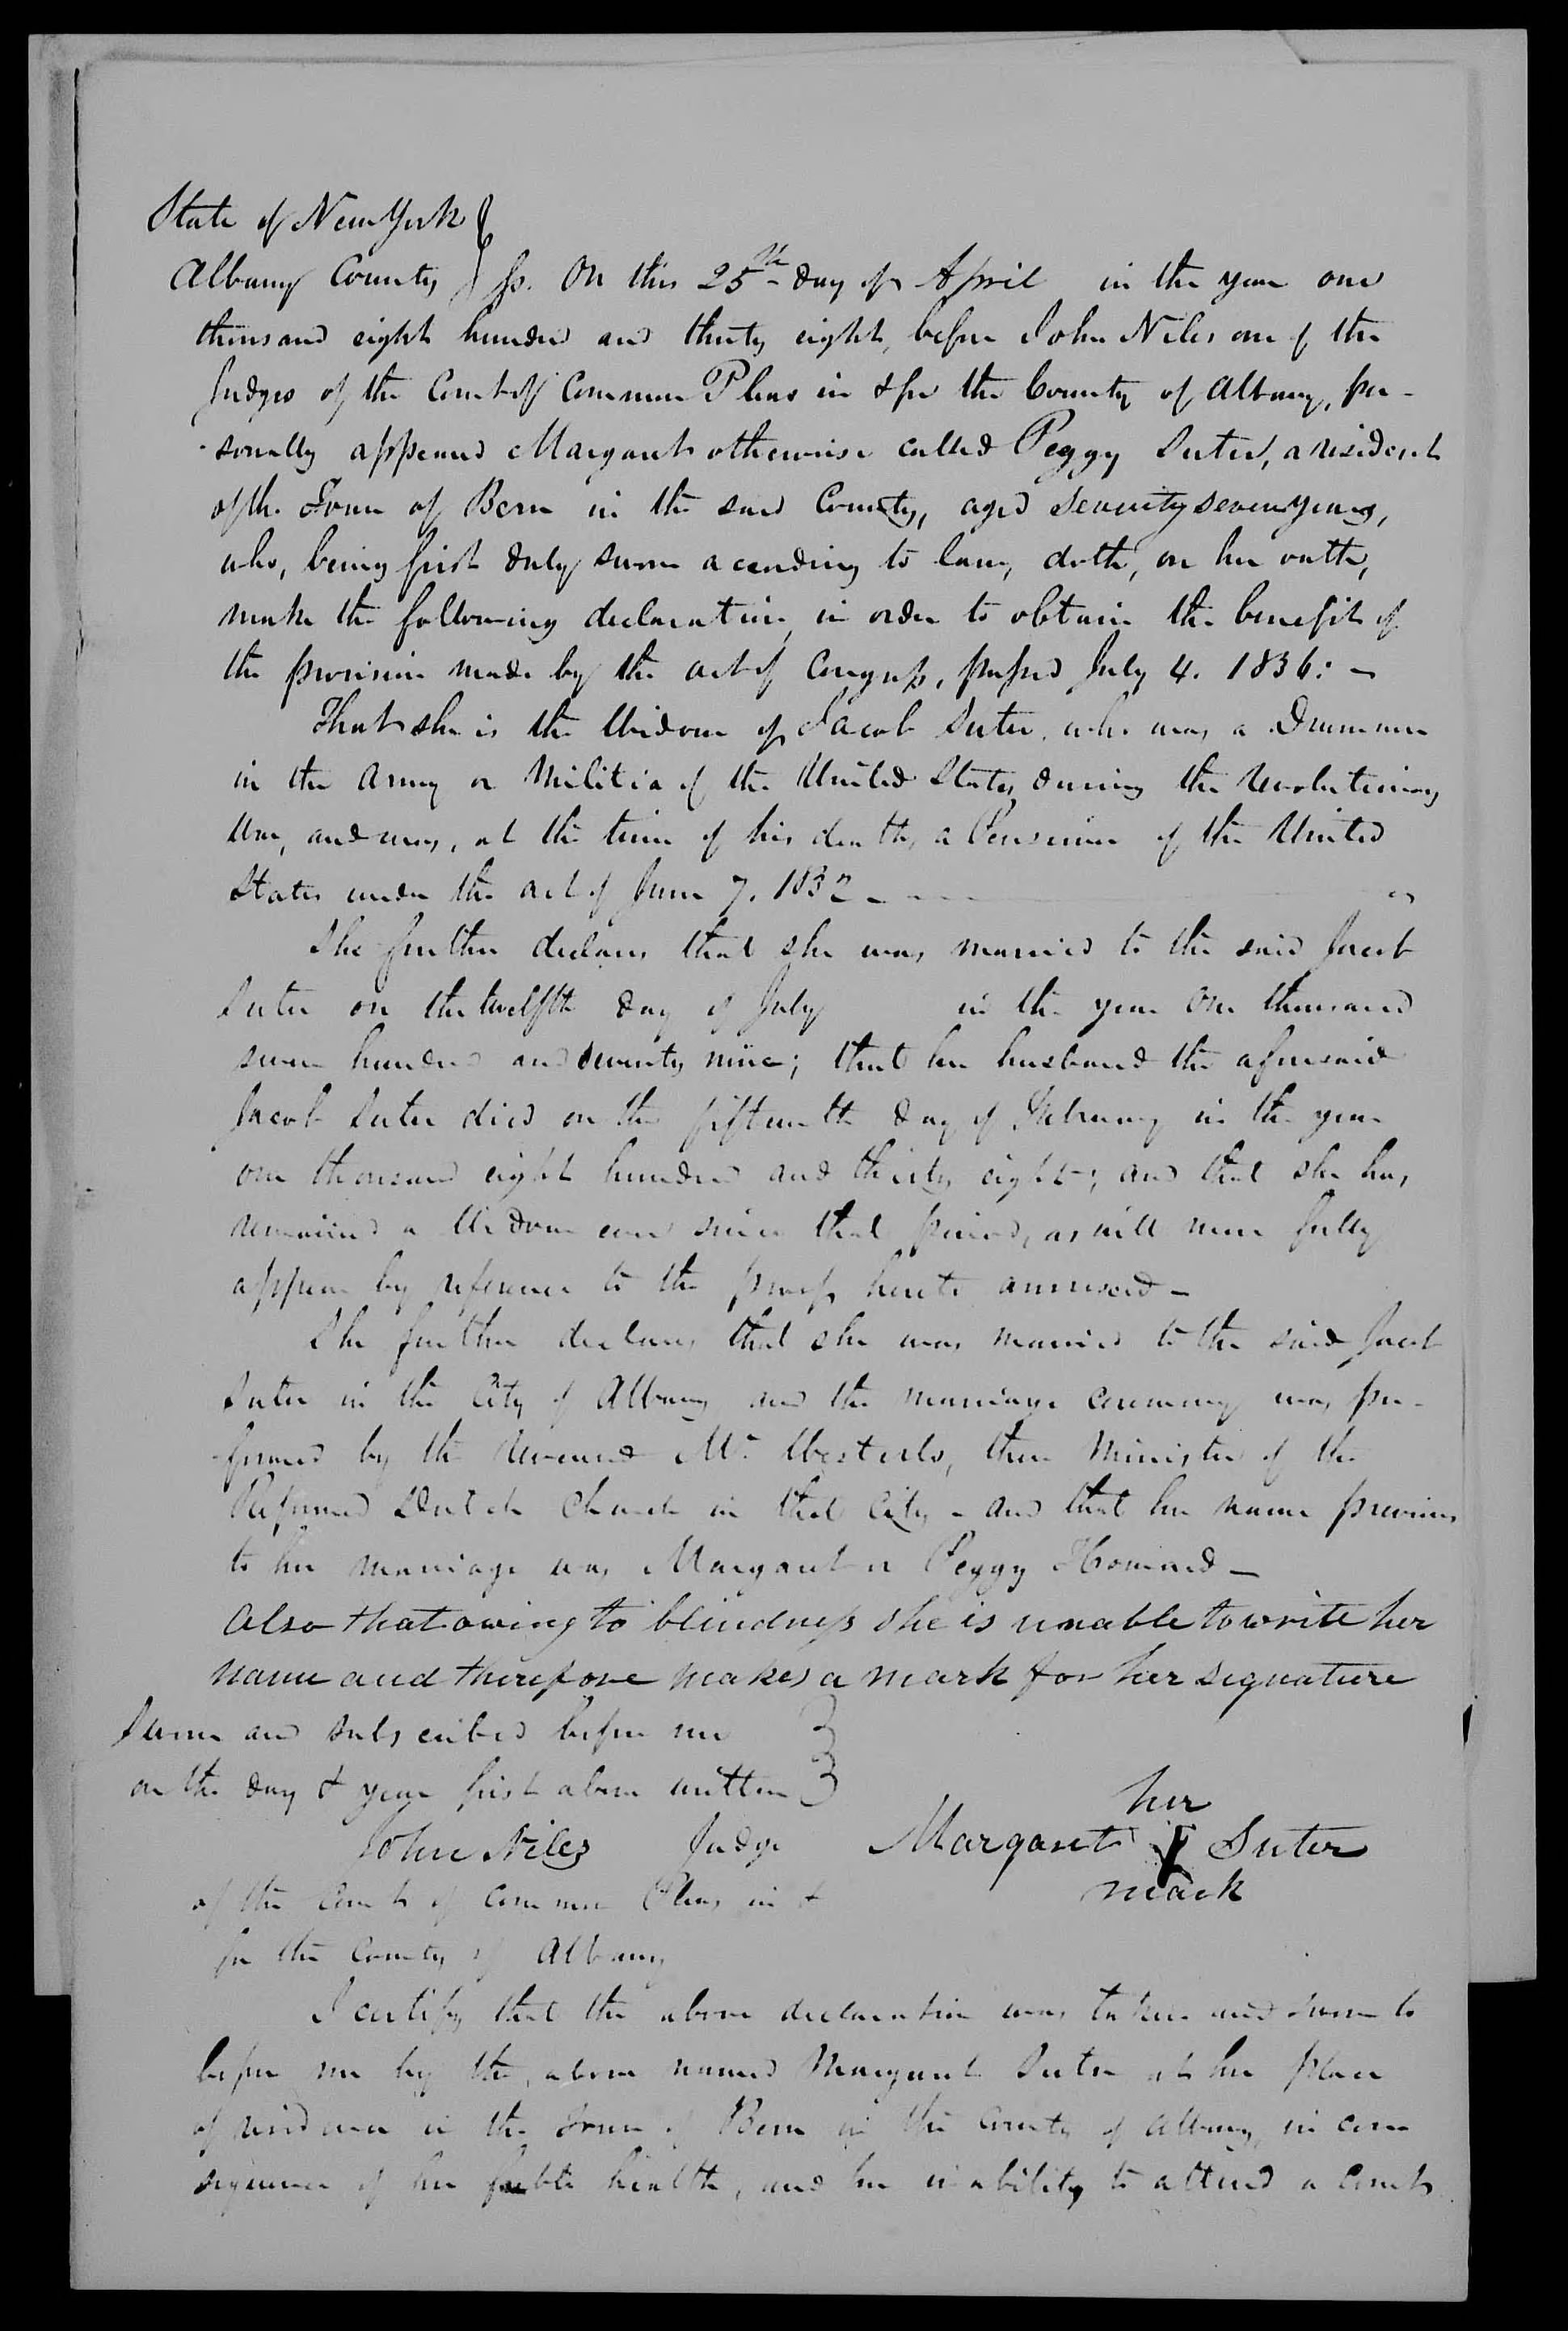 State of New York
Albany County } ss. On this 25th day of April in the year one
thousand eight hundred and thirty eight, before John Niles one of the
Judges of the Court of Common Pleas in & for the County of Albany, per-
sonally appeared Margaret otherwise called Peggy Suter, a resident
of the Town of Bern in the said County, aged seventy seven years,
who, being first duly sworn according to law, doth, on her oath,
make the following declaration, in order to obtain the benefit of
the provision made by the act of Congress, passed July 4. 1836: -
That she is the Widow of Jacob Suter, who was a Drummer
in the Army or Militia of the United States during the Revolutionary
War, and was, at the time of his death, a Pensioner of the United
States under the act of June 7. 1832 -
She further declares that she was married to the said Jacob
Suter on the twelfth day of July in the year One thousand
seven hundred and seventy nine; that her husband the aforesaid
Jacob Suter died on the fifteenth day of February in the year
one thousand eight hundred and thirty eight; and that she has
remained a Widow ever since that period, as will more fully
appear by reference to the proofs hereto annexed -
She further declares that she was married to the said Jacob
Suter in the City of Albany and the marriage ceremony was per-
formed by the Reverend Mr. Westerlo, then Minister of the
Reformed Dutch Church in that City - and that her name previous
to her marriage was Margaret or Peggy Howard -
Also that owing to blindness she is unable to write her
name and therefore makes a mark for her signature
Sworn and subscribed before me
on the day & year first above written
her
John Niles Judge Margaret Suter
mark
of the Court of Common Pleas in &
for the County of Albany
I certify that the above declaration was taken and sworn to
before me by the above named Margaret Suter at her place
of residence in the Town of Bern in the County of Albany, in con
sequence of her feeble health, and her inability to attend a Court